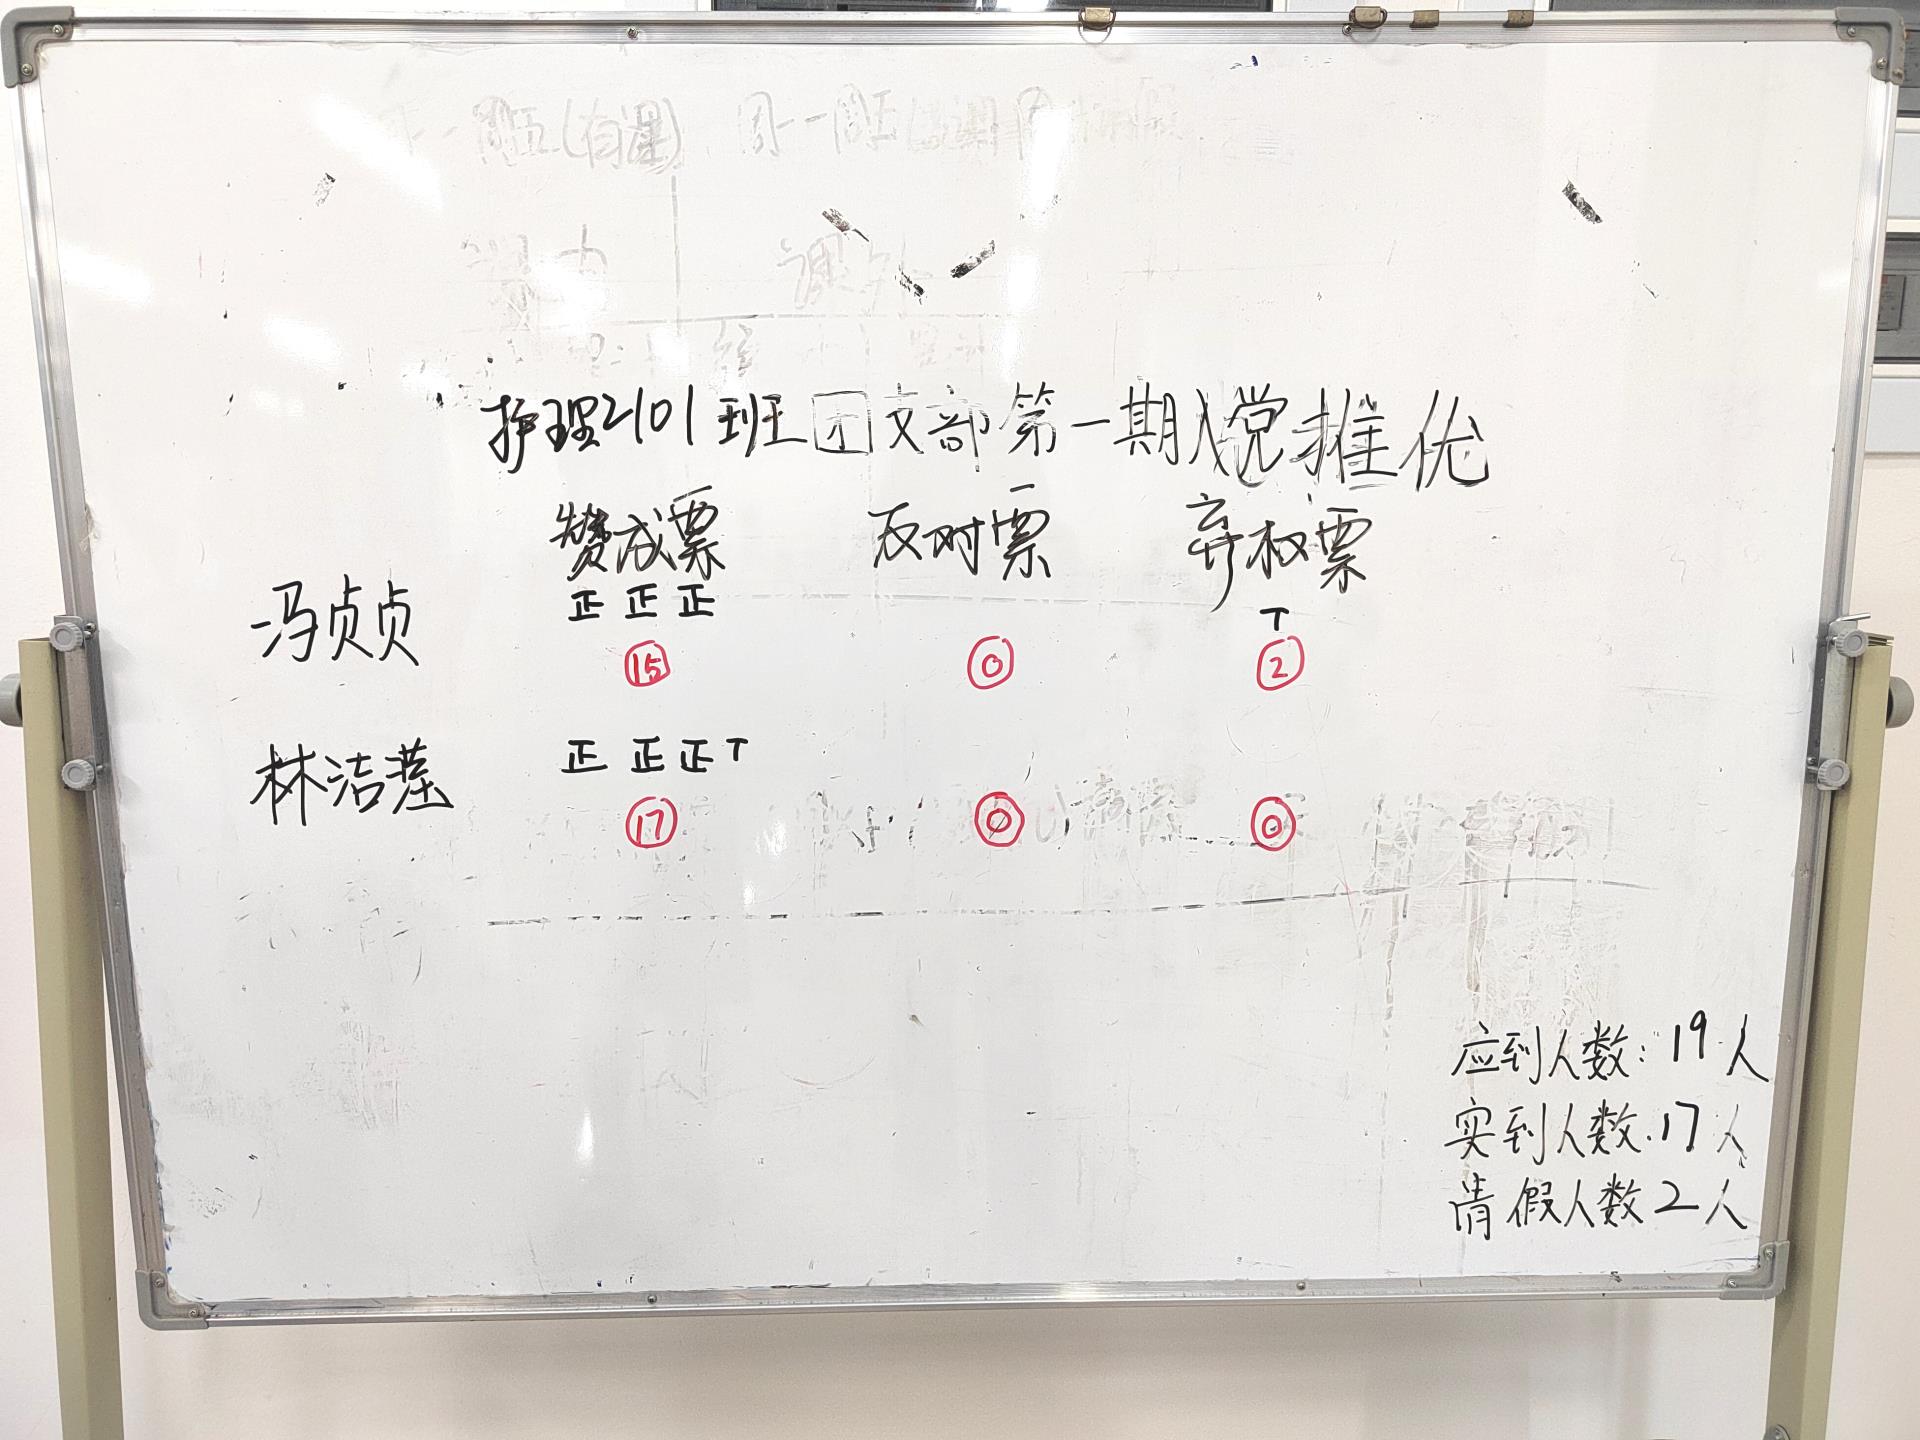 护理2101班团支部第一期入党推优
赞成票 反对票 弃权票
冯贞贞 正 正 正 T
15 0 2
林洁莹 正 正 正 T
17 0 0
应到人数：19人
实到人数.17人
请假人数2人